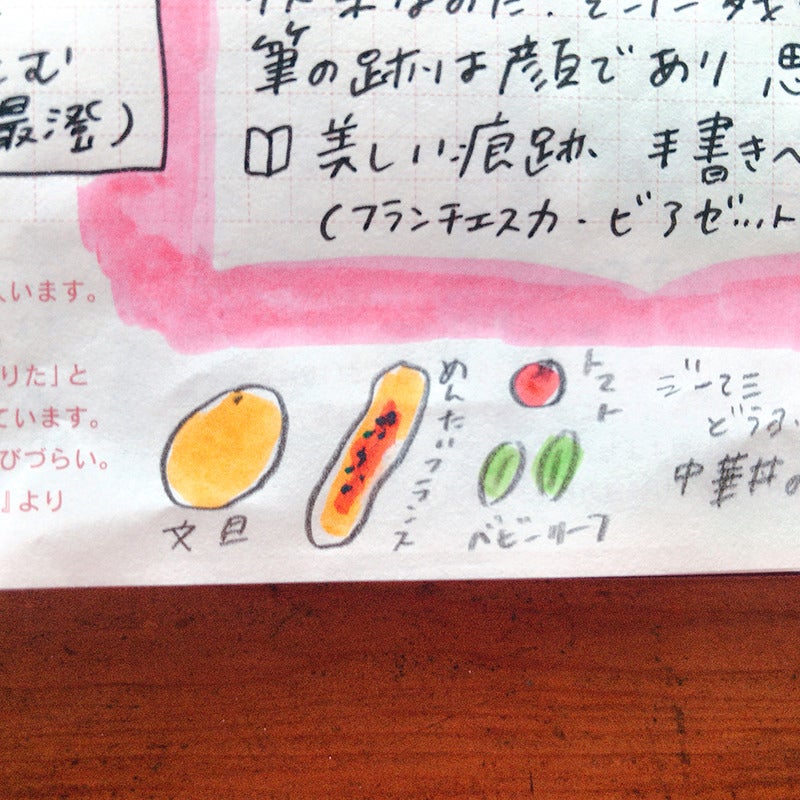 とむ
最澄)
筆の跡は顔であり
美しい痕跡 手書きへ
(フランチェスカ・ビアゼットン
います。
りた」と
ています。
びづらい。
』より
文旦
めんたいフランス
トマト
ベビーリーフ
中華丼の